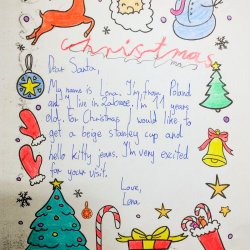 christmas
Dear Santa,
My name is Lena. I'm from Poland
and I live in Zabrze. I'm 11 years
old. For Christmas I would like to
get a beige stanley cup and
hello kitty jeans. I'm very excited
for your visit.
Love,
Lena